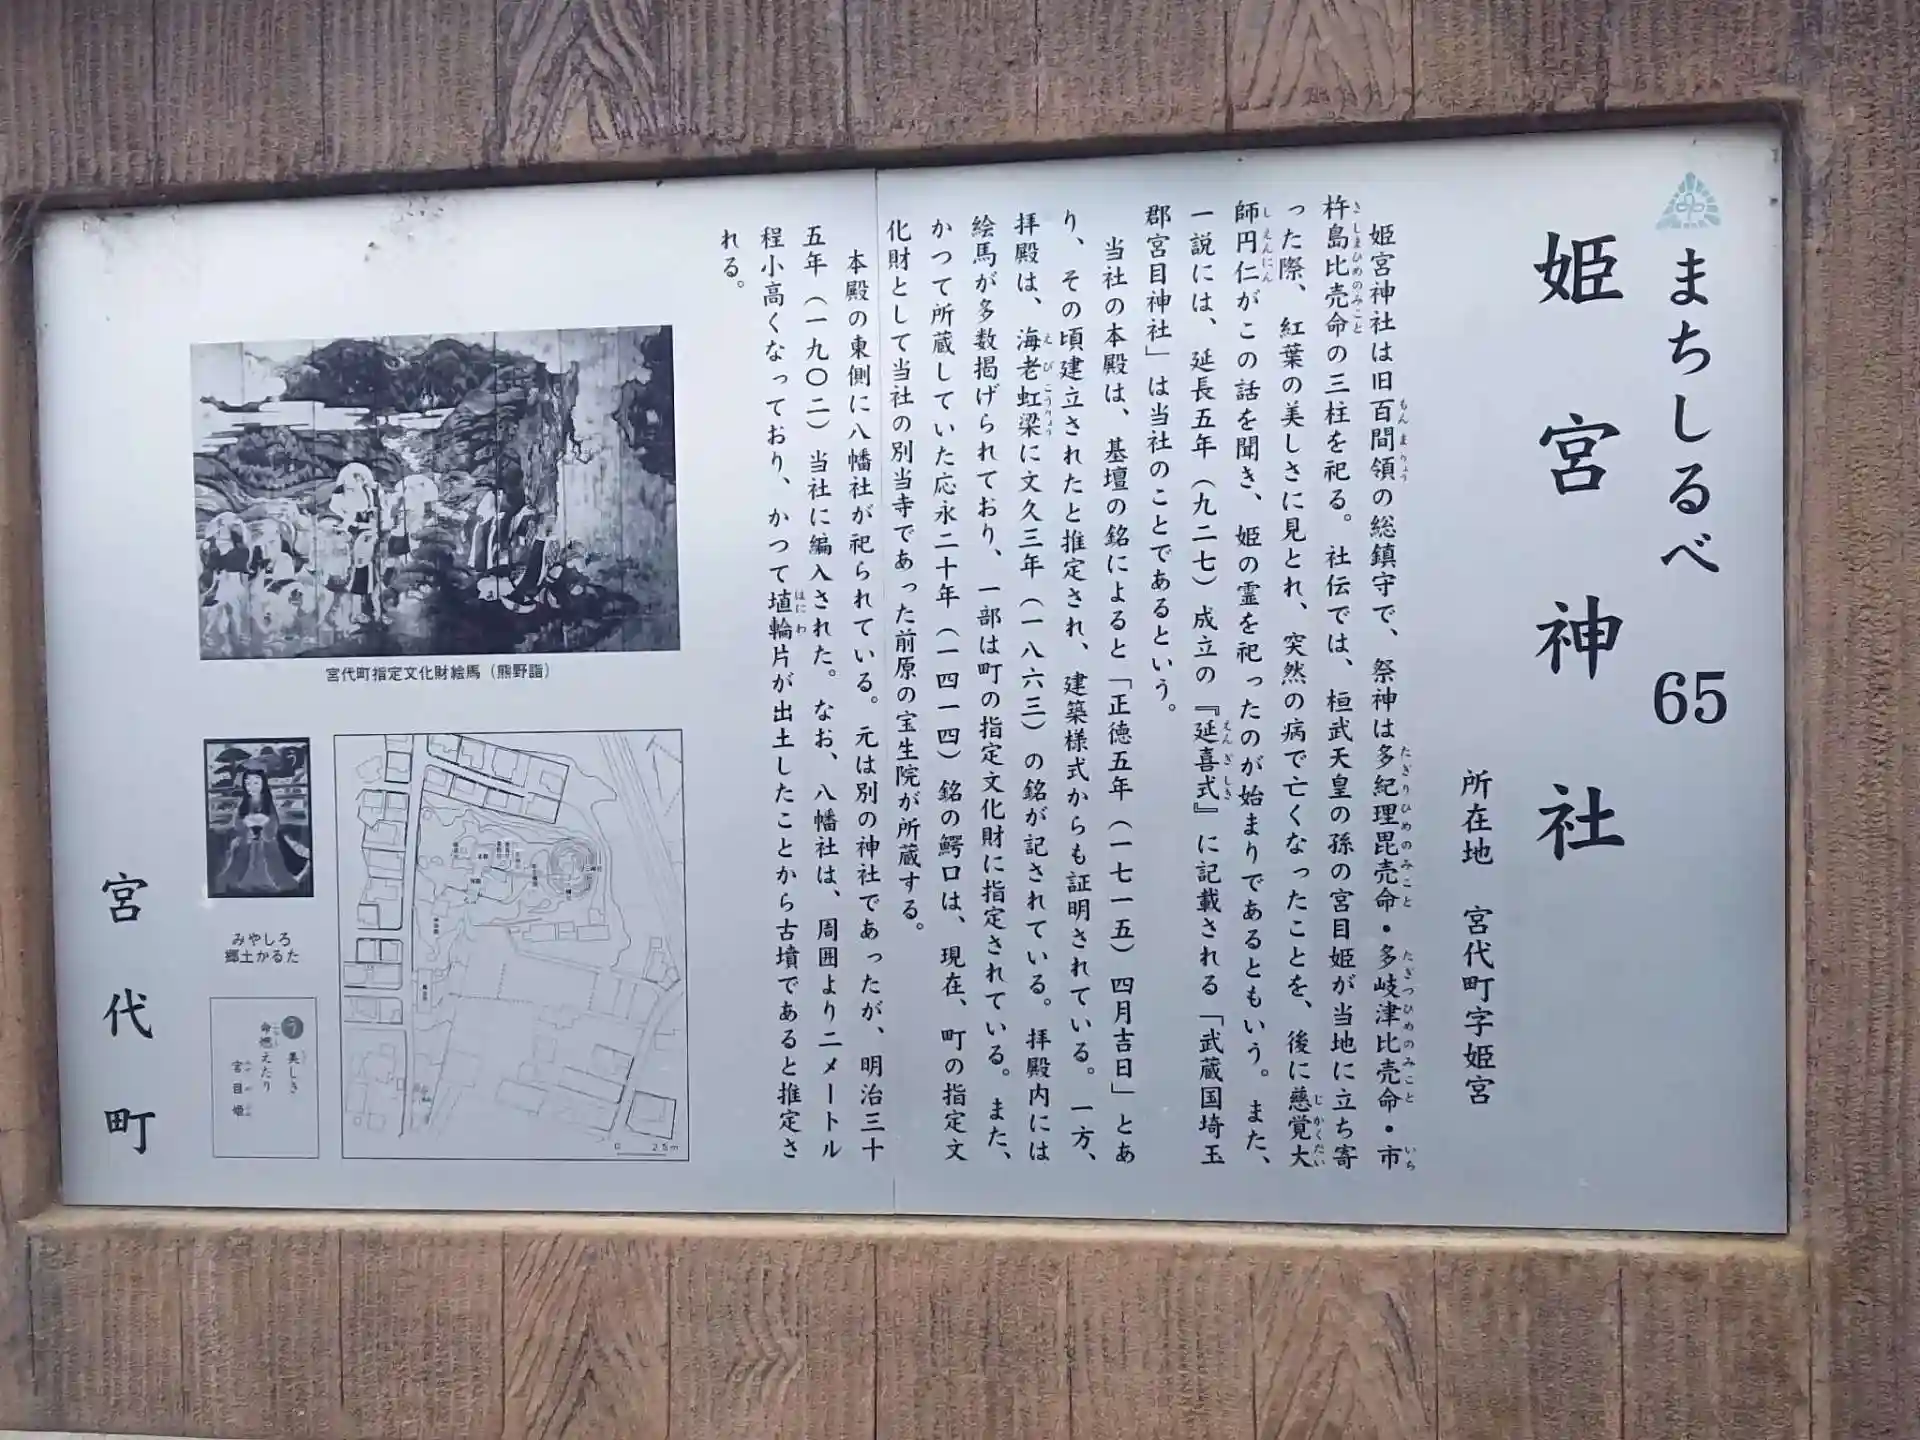 まちしるべ 65
姫宮神社
所在地 宮代町字姫宮
姫宮神社は旧百間領の総鎮守で、祭神は多紀理毘売命・多岐津比売命・市
もんまりょう
たぎりひめのみこと
たぎつひめのみこと
いち
杵島比売命の三柱を祀る。社伝では、桓武天皇の孫の宮目姫が当地に立ち寄
きしまひめのみこと
った際、紅葉の美しさに見とれ、突然の病で亡くなったことを、後に慈覚大
じかくだい
師円仁がこの話を聞き、姫の霊を祀ったのが始まりであるともいう。また、
しえんにん
一説には、延長五年（九二七）成立の『延喜式』に記載される「武蔵国埼玉
えんぎしき
郡宮目神社」は当社のことであるという。
当社の本殿は、基壇の銘によると「正徳五年（一七一五）四月吉日」とあ
り、その頃建立されたと推定され、建築様式からも証明されている。一方、
拝殿は、海老虹梁に文久三年（一八六三）の銘が記されている。拝殿内には
えびこうりょう
絵馬が多数掲げられており、一部は町の指定文化財に指定されている。また、
かつて所蔵していた応永二十年（一四一四）銘の鰐口は、現在、町の指定文
化財として当社の別当寺であった前原の宝生院が所蔵する。
本殿の東側に八幡社が祀られている。元は別の神社であったが、明治三十
五年（一九〇二）当社に編入された。なお、八幡社は、周囲より二メートル
程小高くなっており、かつて埴輪片が出土したことから古墳であると推定さ
はにわ
れる。
宮代町指定文化財絵馬（熊野詣）
みやしろ
郷土かるた
う 美しき
命燃えたり
宮目姫
0 25m
宮代町